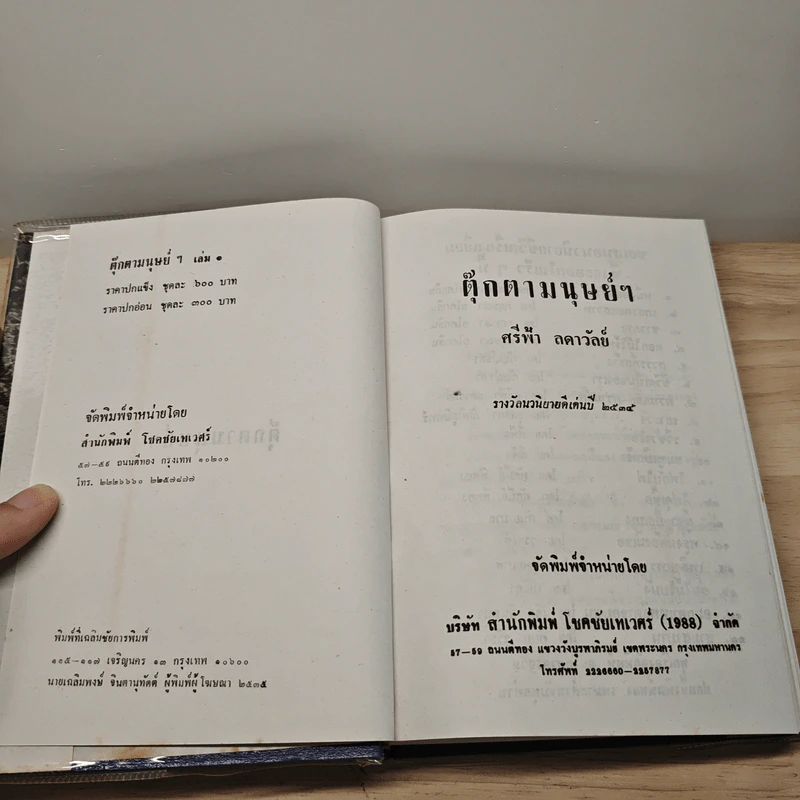 ตุ๊กตามนุษย์ ๆ เล่ม ๑
ราคาปกแข็ง ชุดละ ๖๐๐ บาท
ราคาปกอ่อน ชุดละ ๓๐๐ บาท
จัดพิมพ์จำหน่ายโดย
สำนักพิมพ์ โชคชัยเทเวศร์
๕๗-๕๙ ถนนตีทอง กรุงเทพ ๑๐๒๐๐
โทร. ๒๒๒๖๖๖๐ ๒๒๕๗๘๗๗
พิมพ์ที่เฉลิมชัยการพิมพ์
๑๑๕-๑๑๗ เจริญนคร ๑๓ กรุงเทพ ๑๐๖๐๐
นายเฉลิมพงษ์ จินตานุทัตต์ ผู้พิมพ์ผู้โฆษณา ๒๕๓๕
ตุ๊กตามนุษย์ๆ
ศรีฟ้า ลดาวัลย์
รางวัลนวนิยายดีเด่นปี ๒๕๓๔
จัดพิมพ์จำหน่ายโดย
บริษัท สำนักพิมพ์ โชคชัยเทเวศร์ (1988) จำกัด
57-59 ถนนตีทอง แขวงวังบูรพาภิรมย์ เขตพระนคร กรุงเทพมหานคร
โทรศัพท์ 2226660-2257877